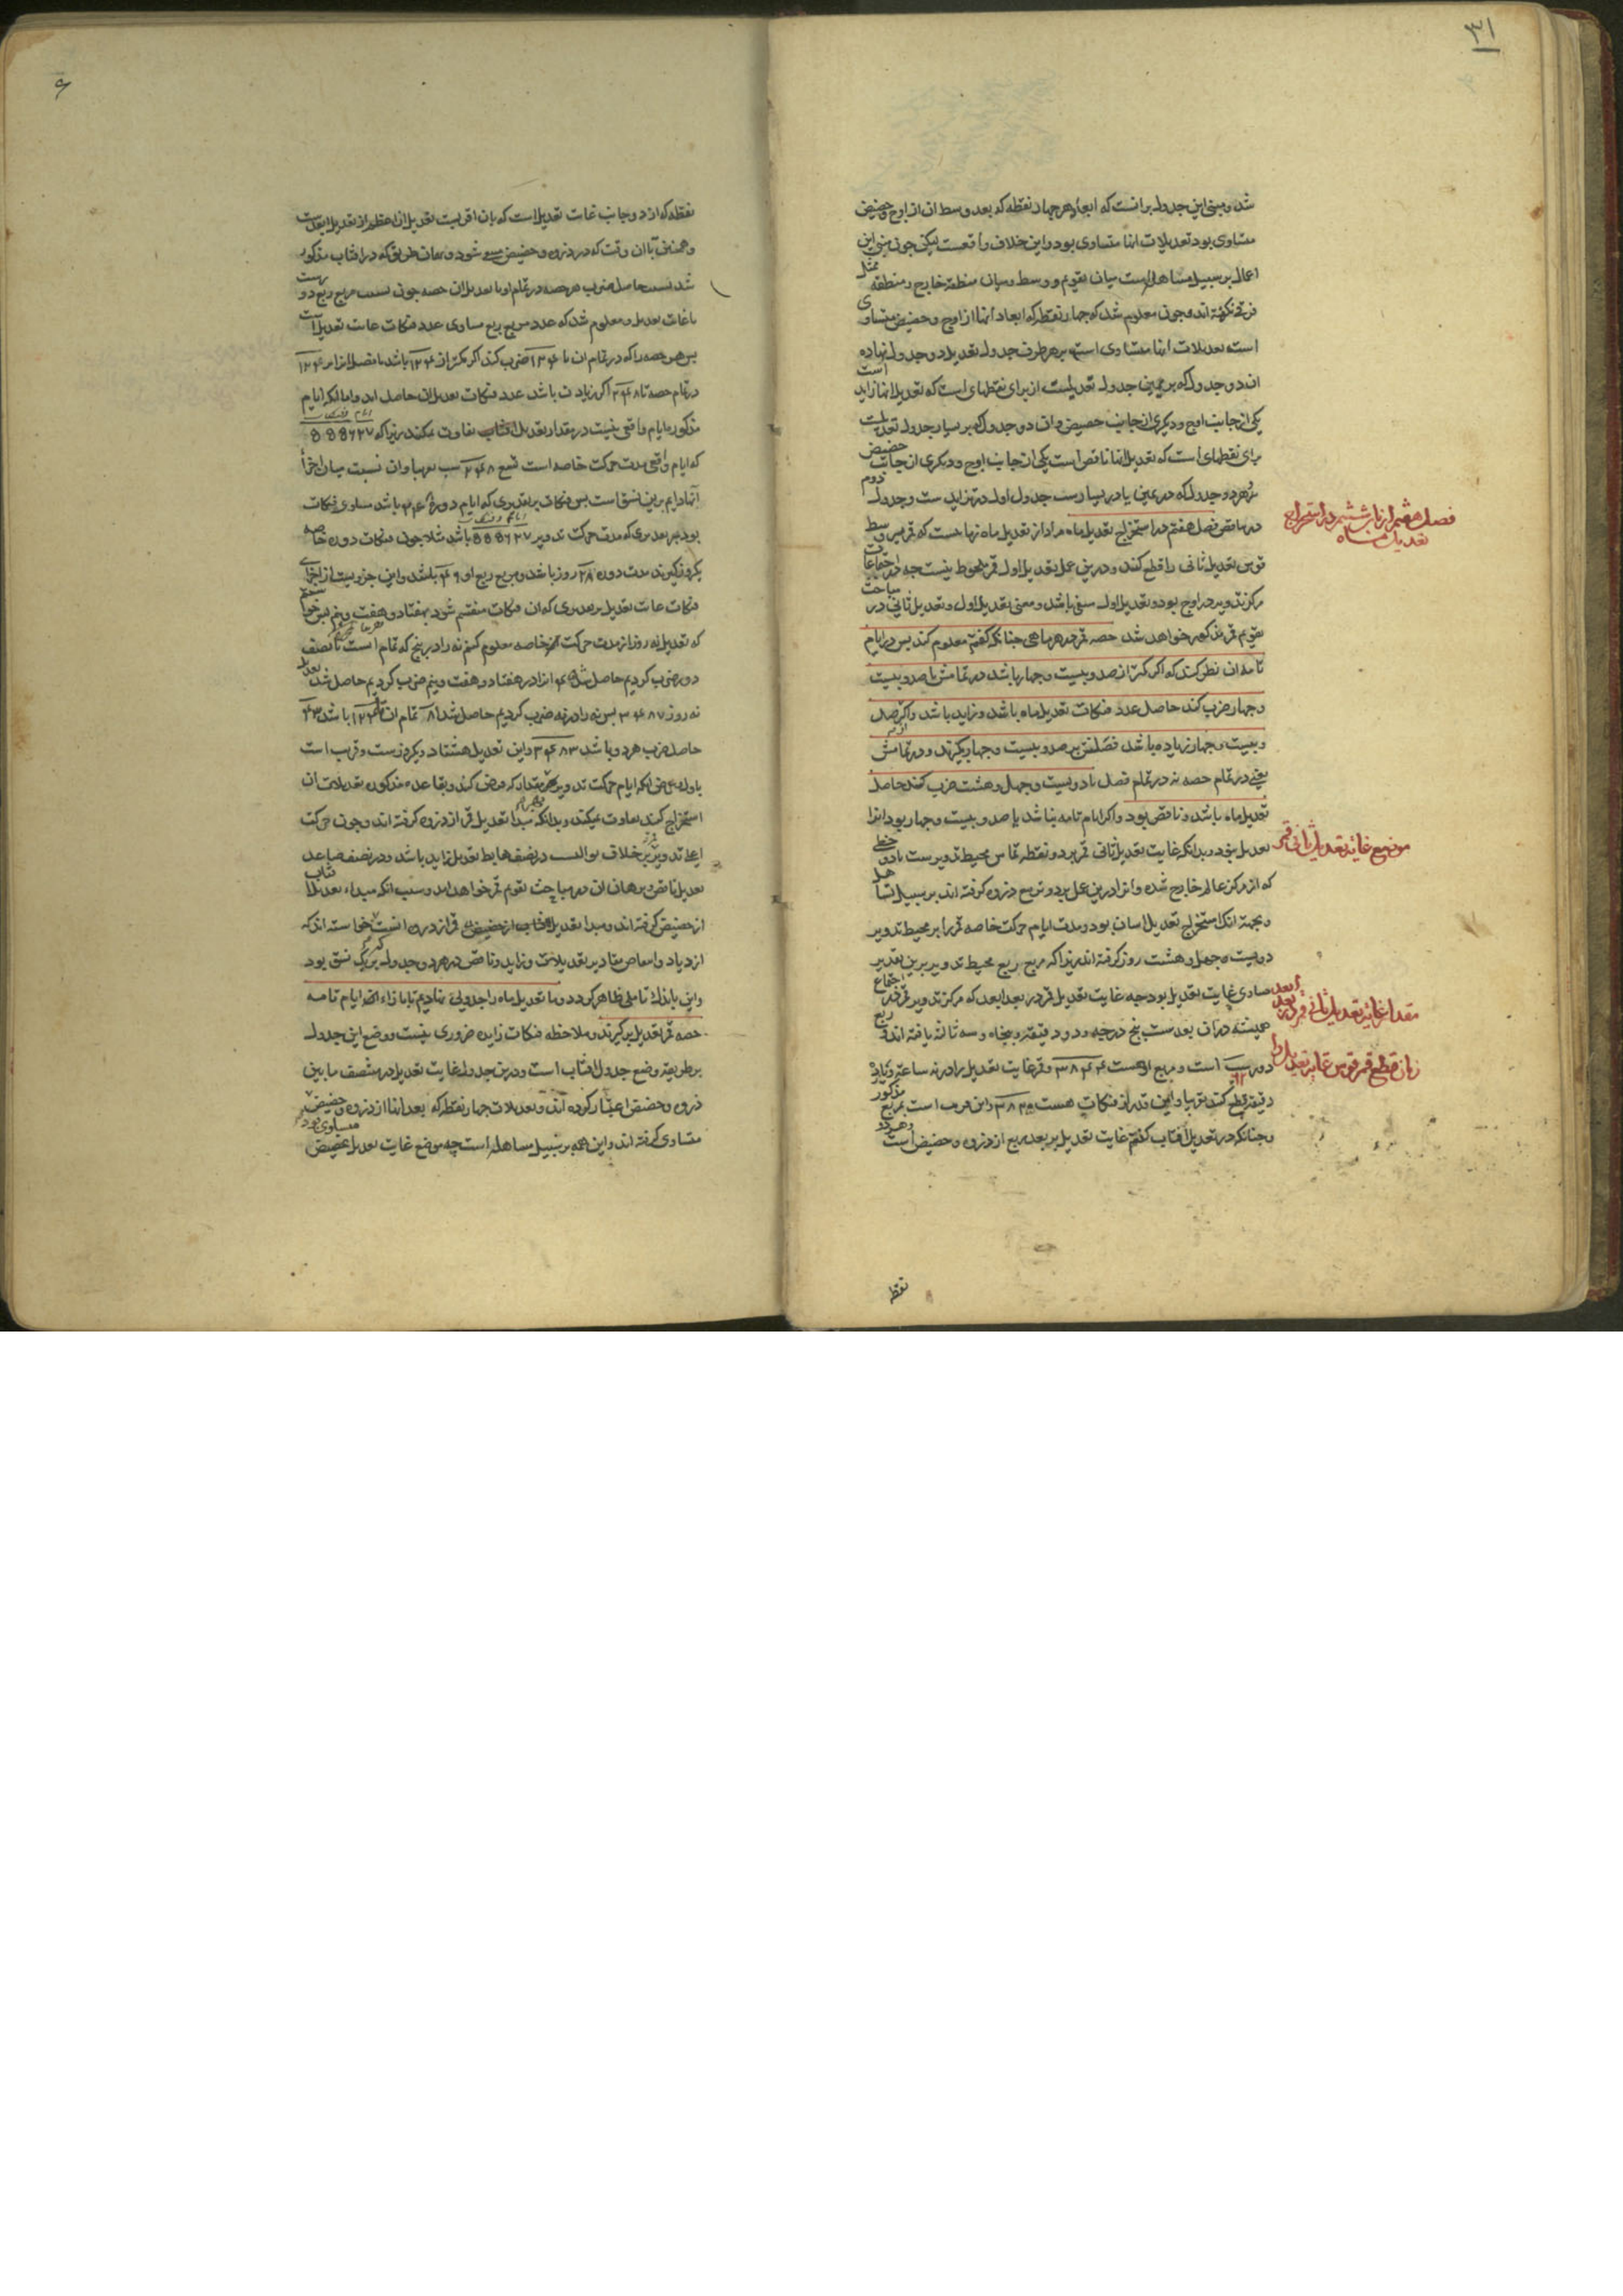 ۳۱
شد و مبنی این جدول بر آنست که ابعاد هر چهار نقطه که بعد وسط ان از اوج و حضیض
متساوی بود تعدیلات انها متساوی بود و این خلاف واقعست لیکن چون مبنی این
اعمال بر سبیل مساهله است میان تقویم و وسط و میان منطقه خارج و منطقه ممثل
فرقی نکرده اند و چون معلوم شد که چهار نقطه که ابعاد انها از اوج و حضیض متساوی
است تعدیلات انها متساوی است بر هر طرف جدول تعدیل دو جدول نهاده
ان دو جدول که بر یمین جدول تعدیلست از برای نقطهای است که تعدیل انها زاید است
یکی از جانب اوج و دیگری از جانب حضیض و ان دو جدول که بر یسار جدول تعدیلست
برای نقطهای است که تعدیل انها ناقص است یکی از جانب اوج و دیگری از جانب حضیض
و هر دو جدول که در یمین یا در یسارست جدول اول در تزایدست و جدول دوم
در تناقص فصل هفتم در استخراج تعدیل ماه مراد از تعدیل ماه
فصل هفتم از باب ششم در استخراج
تعدیل ماه
قوس تعدیل ثانی را قطع کند و درین عمل تعدیل اول قمر ملحوظ نیست چه در اجتماعات
مرکز تدویر در اوج بود و تعدیل اول منفی باشد و معنی تعدیل اول و تعدیل ثانی در مباحث
تقویم قمر مذکور خواهد شد حصه قمر در هر ماهی چنانکه گفتیم معلوم کند پس در ایام
تامه ان نظر کند که اگر کمتر از صد و بیست و چهار باشد در تمامش تا صد و بیست
و چهار ضرب کند حاصل عدد فنکات تعدیل ماه باشد و زاید باشد و اگر از صد
و بیست و چهار زیاده باشد فضلش بر صد و بیست و چهار بگیرند و در تمامش
یعنی در تمام حصه نه در تمام فضل تا دویست و چهل و هشت ضرب کند حاصل
تعدیل ماه باشد و ناقص بود و اگر ایام تامه نباشد یا صد و بیست و چهار بود انرا
تعدیل نبود و بدانکه غایت تعدیل ثانی قمر بر دو نقطه تماس محیط تدویرست با دو خطی
موضع غایة تعدیل ثانی قمر
که از مرکز عالم خارج شده و انرا درین عمل بر دو تربیع ذروه گرفته اند بر سبیل تساهل
و بجهة آنکه استخراج تعدیل اسان بود و مدت ایام حرکت خاصه قمر را بر محیط تدویر
دویست و چهل و هشت روز گرفته اند زیرا که مربع ربع محیط تدویر برین تقدیر
مساوی غایت تعدیل بود چه غایت تعدیل قمر در بعد ابعد که مرکز تدویر قمر در اجتماع
مقدار غایة تعدیل ثانی قمر در بعد ابعد
همیشه در ان بعدست پنج درجه و دو دقیقه و پنجاه و سه ثانیه یافته اند و ربع
دور است و مربع او هست ۳۸۴۴ و قمر غایت تعدیل را در نه ساعة و یازده
زمان قطع قمر قوس غایة تعدیل را
دقیقه قطع کند تقریبا و این قدر از فنکات هست ۳۸۲۵ و این قریب است بمربع مذکور
و چنانکه در تعدیل افتاب گفتیم غایت تعدیل بر بعد ربع از ذروه و حضیض است و هر دو
نقطه
۶
نقطه که از دو جانب غایت تعدیل است که بان اقربست تعدیل ان اعظم از تعدیل ابعدست
و همچنین تا ان وقت که در ذروه و حضیض شود و بهمان طریق که در افتاب مذکور
شد نسبت حاصل ضرب هر حصه در تمام او با تعدیل ان حصه چون نسبت مربع ربع دور است
با غایت تعدیل و معلوم شد که عدد مربع ربع مساوی عدد فنکات غایت تعدیل است
پس هر حصه را که در تمام ان تا ۱۲۴ ضرب کند اگر کمتر از ۱۲۴ باشد یا فضل انرا بر ۱۲۴
در تمام حصه تا ۲۴۸ اگر زیادت باشد عدد فنکات تعدیل ان حاصل اید و اما انکه ایام
مذکوره ایام واقعی نیست در مقدار تعدیل تفاوت نمیکند زیرا که
که ایام واقعی مدت حرکت خاصه است تسع ۲۴۸ است تقریبا و ان نسبت میان اجزأ
آنها دایم برین نسق است پس فنکات بر تقدیری که ایام دوره ۲۴۸ باشد مساوی فنکات
بود بر تقدیری که مدت حرکت تدویر باشد مثلا چون فنکات دوره خاصه
یکروز گیرند مدت دوره ۲۸ روز باشد و مربع ربع او ۴۹ باشد و این جزویست از اجزای
فنکات غایت تعدیل بر تقدیری که ان فنکات منقسم شود بهفتاد و هفت و نیم پس خواهیم
که تعدیل نه روز از مدت حرکت خاصه معلوم کنیم نه را در پنج که تمام است تا نصف
دور ضرب کردیم حاصل شد ۴۵ انرا در هفتاد و هفت و نیم ضرب کردیم حاصل شد تعدیل
نه روز ۳۴۸۷ پس نه را در نه ضرب کردیم حاصل شد ۸۱ تمام ان تا ۱۲۴ باشد ۴۳
حاصل ضرب هر دو باشد ۳۴۸۳ و این تعدیل هشتاد و یکروزست و قریب است
باول و غرض انکه ایام حرکت تدویر بهر مقدار که فرض کنند و بقاعده مذکوره تعدیلات ان
استخراج کنند تفاوت نمیکند و بدانکه مبدا تعدیل قمر از ذروه گرفته اند و چون حرکت
اعلاء تدویر بر خلاف توالیست در نصف هابط تعدیل زاید باشد و در نصف صاعد
تعدیل ناقص و برهان ان در مباحث تقویم قمر خواهد امد و سبب انکه مبداء تعدیل افتاب
از حضیض گرفته اند و مبدا تعدیل قمر از ذروه انست خواسته اند که
ازدیاد و انتقاص مقادیر تعدیلات و زاید و ناقص در هر دو جدول بر یک نسق بود
و این باندک تاملی ظاهر گردد و ما تعدیل ماه را جدولی نهادیم تا بازاء ایام تامه
حصه قمر تعدیل برگیرند و ملاحظه فنکات زایده ضروری نیست و وضع این جدول
بر طریقه وضع جدول افتاب است و درین جدول غایت تعدیل در منتصف ما بین
ذروه و حضیض اعتبار کرده اند و تعدیلات چهار نقطه که بعد انها از ذروه و حضیض مساوی بود
متساوی گرفته اند و این همه بر سبیل مساهله است چه موضع غایت تعدیل بحضیض